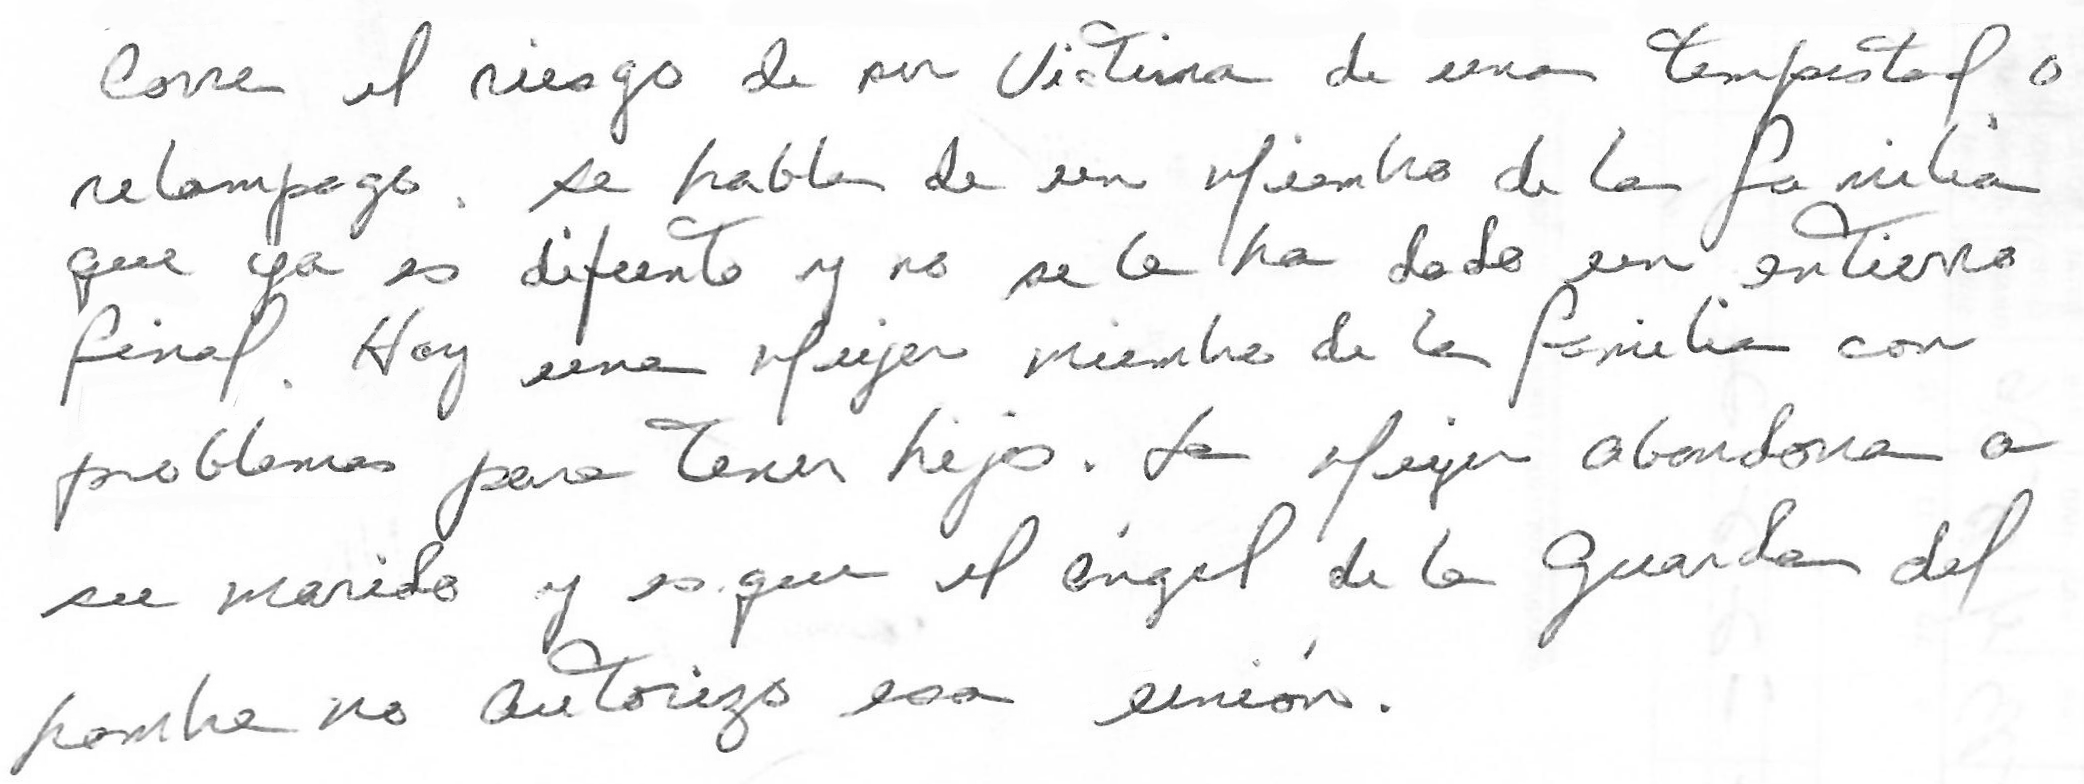 Corre el riesgo de ser victima de una tempestad o
relampago. Se habla de un miembro de la familia
que ya es difunto y no se le ha dado un entierro
final. Hay una mujer miembro de la familia con
problemas para tener hijos. La mujer abandona a
su marido y es que el ángel de la Guarda del
hombre no autorizo esa unión.